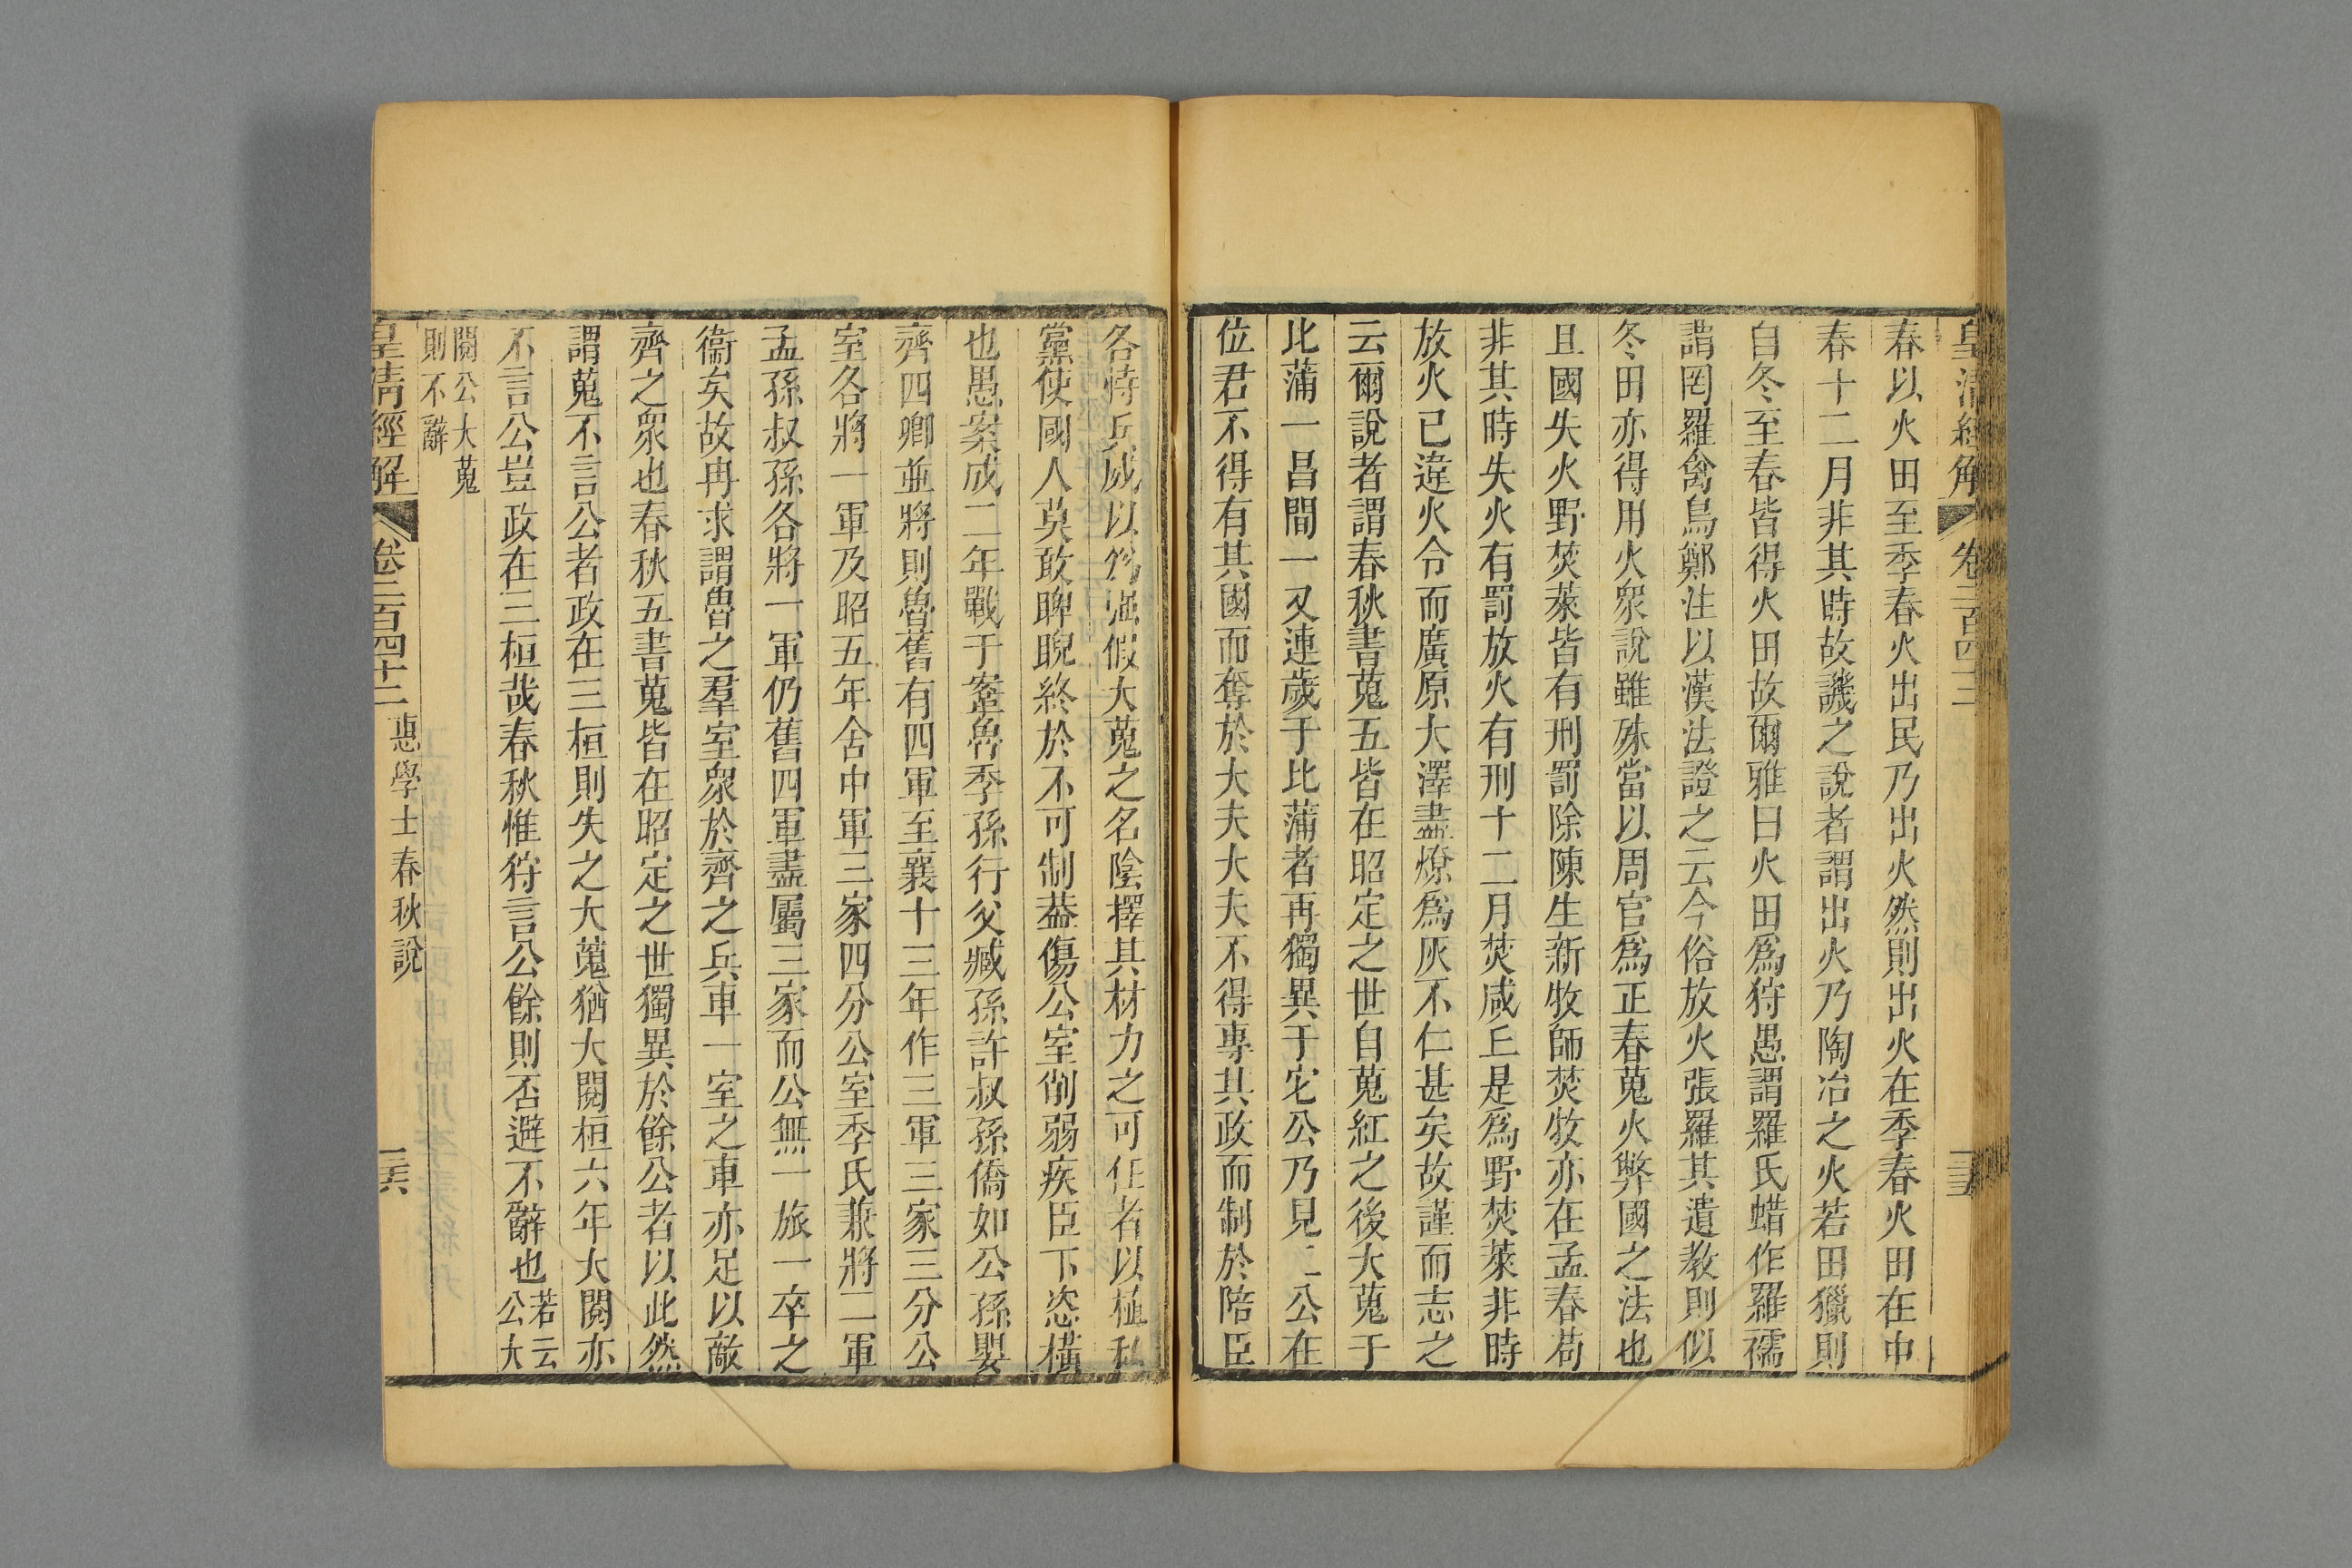 皇清經解 卷二百四十二 三十五
春以火田至季春火出民乃出火然則出火在季春火田在中
春十二月非其時故譏之說者謂出火乃陶冶之火若田獵則
自冬至春皆得火田故爾雅曰火田爲狩愚謂羅氏蜡作羅襦
謂罔羅禽鳥鄭注以漢法證之云今俗放火張羅其遺教則似
冬田亦得用火衆說雖殊當以周官爲正春蒐火弊國之法也
且國失火野焚萊皆有刑罰除陳生新牧師焚牧亦在孟春苟
非其時失火有罰放火有刑十二月焚咸丘是爲野焚萊非時
放火已違火令而廣原大澤盡燎爲灰不仁甚矣故謹而志之
云爾說者謂春秋書蒐五皆在昭定之世自蒐紅之後大蒐于
比蒲一昌間一又連歲于比蒲者再獨異于它公乃見二公在
位君不得有其國而奪於大夫大夫不得專其政而制於陪臣
各恃兵威以爲强假大蒐之名陰擇其材力之可任者以植私
黨使國人莫敢睥睨終於不可制葢傷公室削弱疾臣下恣橫
也愚案成二年戰于鞌魯季孫行父臧孫許叔孫僑如公孫嬰
齊四卿並將則魯舊有四軍至襄十三年作三軍三家三分公
室各將一軍及昭五年舍中軍三家四分公室季氏兼將二軍
孟孫叔孫各將一軍仍舊四軍盡屬三家而公無一旅一卒之
衞矣故冉求謂魯之羣室衆於齊之兵車一室之車亦足以敵
齊之衆也春秋五書蒐皆在昭定之世獨異於餘公者以此然
謂蒐不言公者政在三桓則失之大蒐猶大閱桓六年大閱亦
不言公豈政在三桓哉春秋惟狩言公餘則否避不辭也若云公大
閱公大蒐則不辭
皇清經解 卷二百四十二 惠學士春秋說 三十六